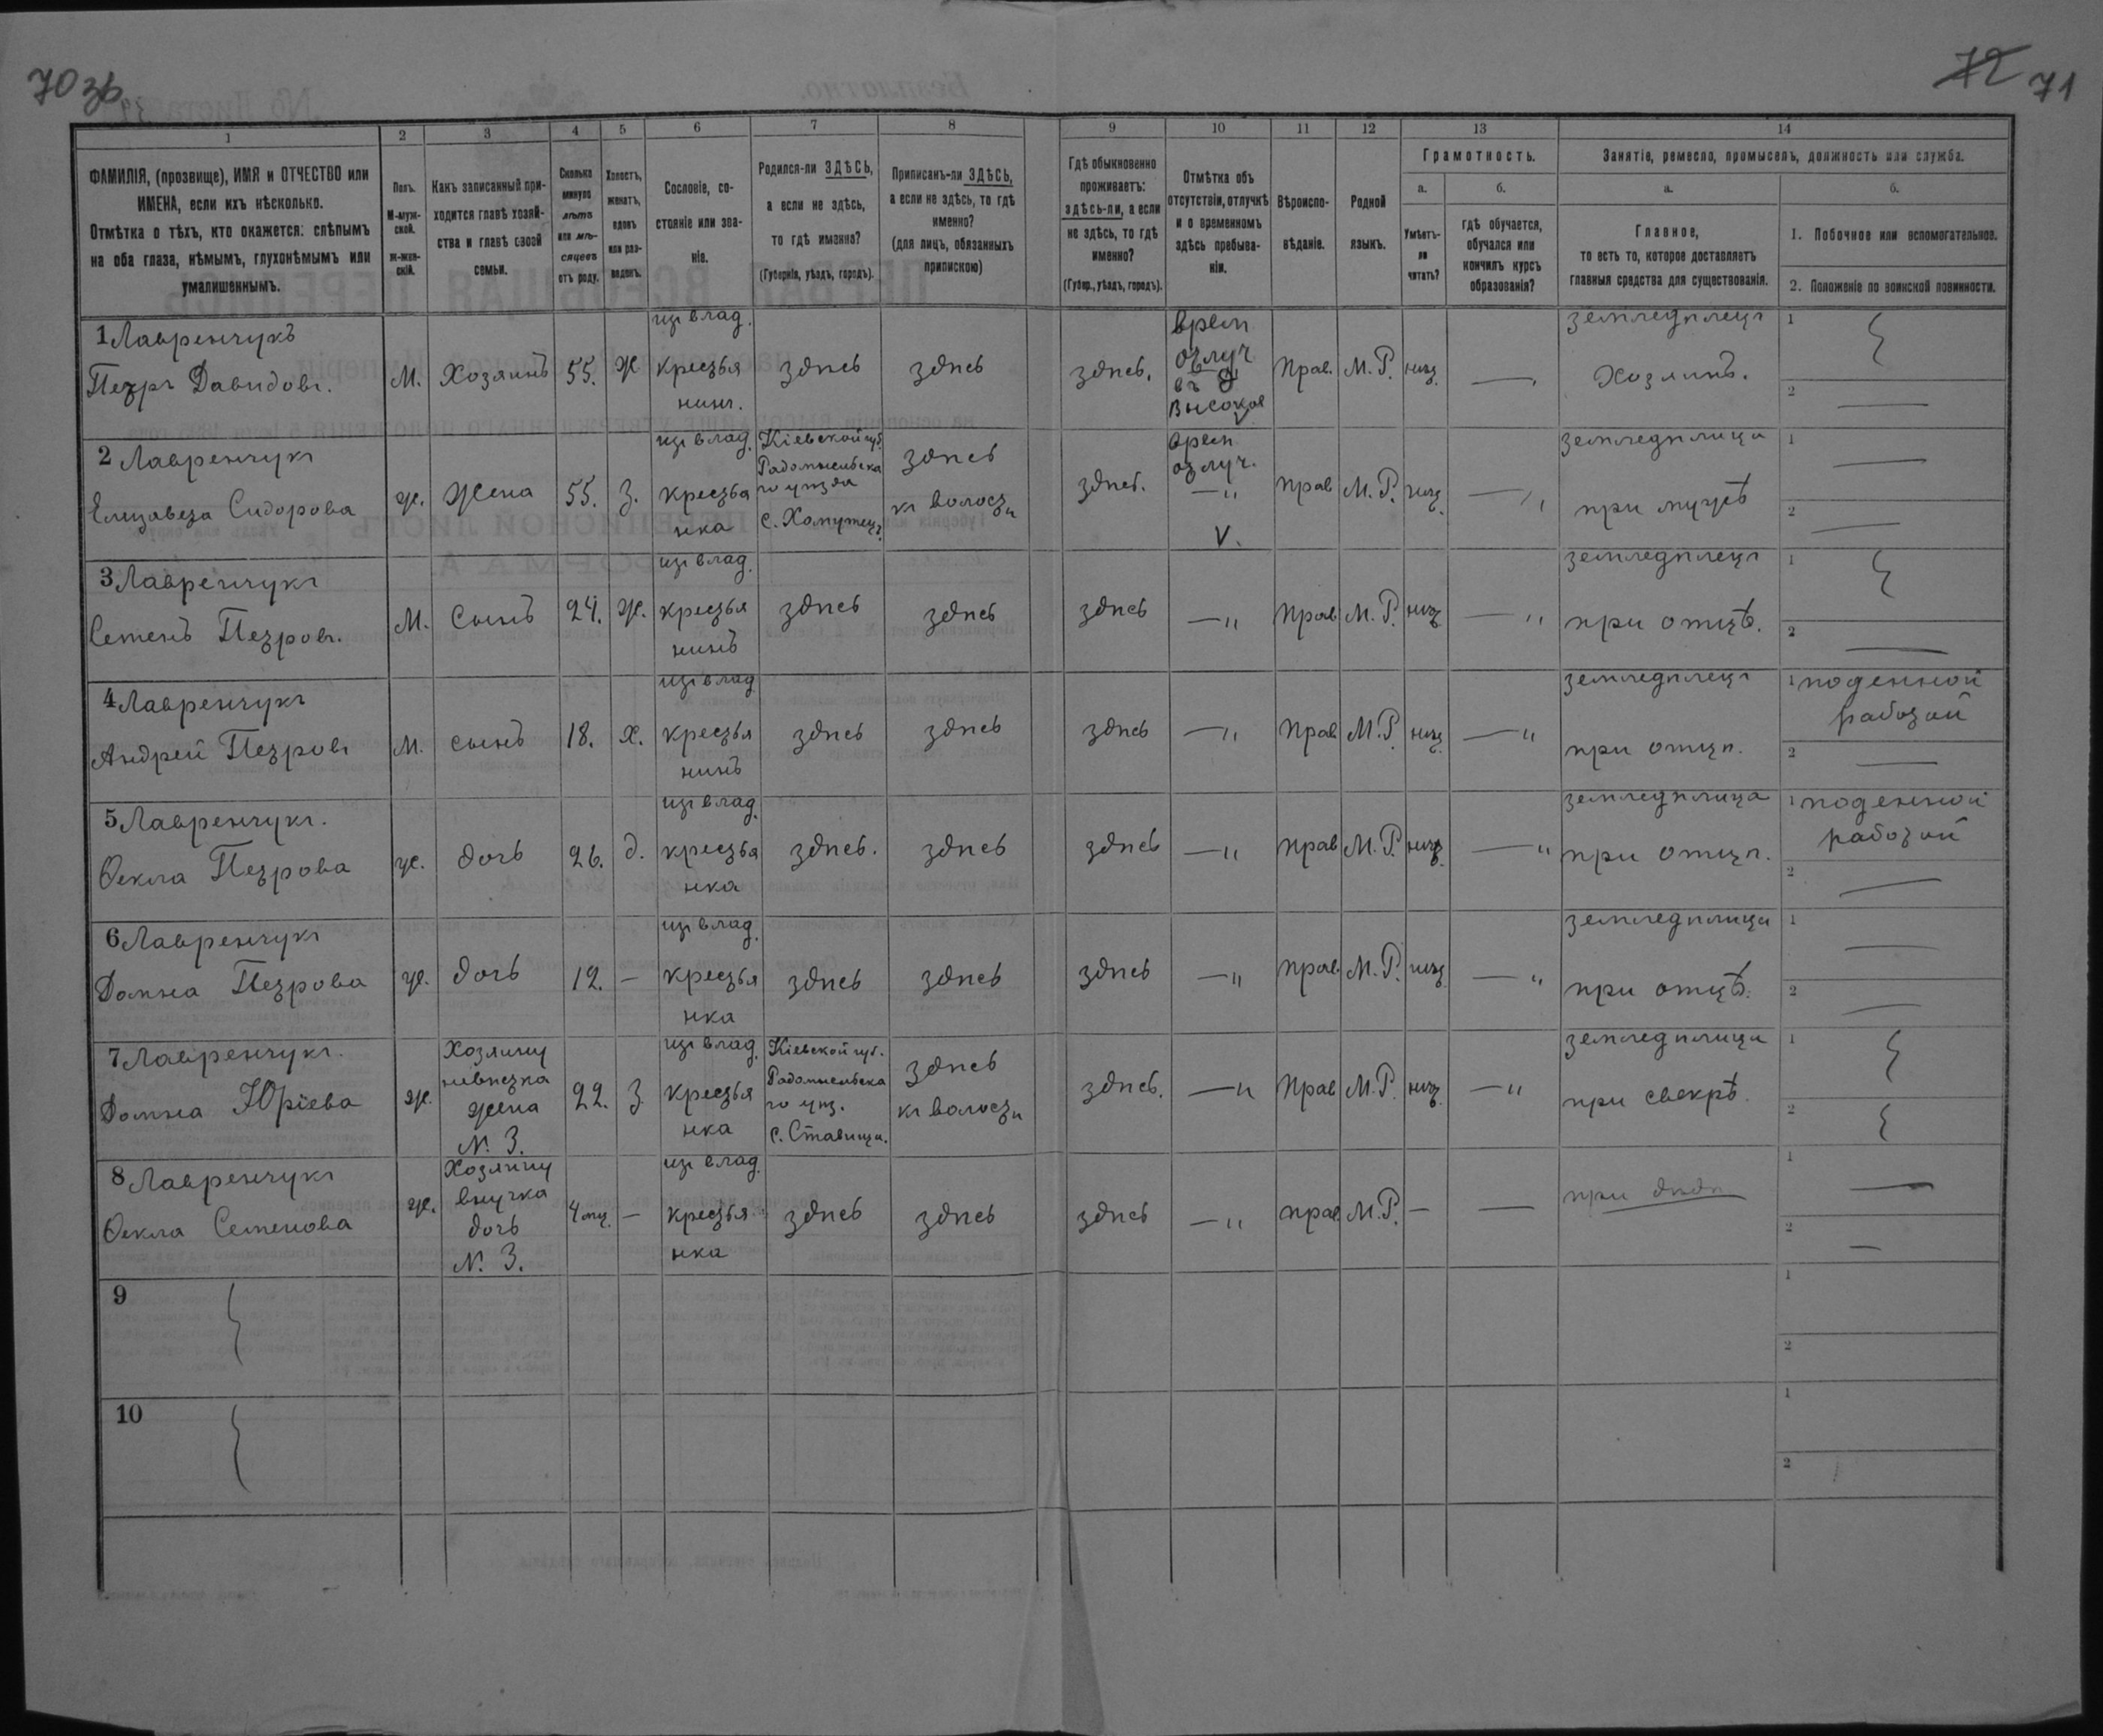 70 зв
72 71
1 2 3 4 5 6 7 8 9 10 11 12 13 14
ФАМИЛІЯ, (прозвище), ИМЯ и ОТЧЕСТВО или
ИМЕНА, если ихъ нѣсколько.
Отмѣтка о тѣхъ, кто окажется: слѣпымъ
на оба глаза, нѣмымъ, глухонѣмымъ или
умалишеннымъ.
Полъ.
М-муж-
ской.
ж-жен-
скій.
Какъ записанный при-
ходится главѣ хозяй-
ства и главѣ своей
семьи.
Сколько
минуло
лѣтъ
или мѣ-
сяцевъ
отъ роду.
Холостъ,
женатъ,
вдовъ
или раз-
веденъ.
Сословіе, со-
стояніе или зва-
ніе.
Родился-ли ЗДѢСЬ,
а если не здѣсь,
то гдѣ именно?
(Губернія, уѣздъ, городъ).
Приписанъ-ли ЗДѢСЬ,
а если не здѣсь, то гдѣ
именно?
(для лицъ, обязанныхъ
припискою)
Гдѣ обыкновенно
проживаетъ:
здѣсь-ли, а если
не здѣсь, то гдѣ
именно?
(Губер., уѣздъ, городъ).
Отмѣтка объ
отсутствіи, отлучкѣ
и о временномъ
здѣсь пребыва-
ніи.
Вѣроиспо-
вѣданіе.
Родной
языкъ.
Грамотность.
а.
Умѣетъ-
ли
читать?
б.
гдѣ обучается,
обучался или
кончилъ курсъ
образованія?
Занятіе, ремесло, промыселъ, должность или служба.
а.
Главное,
то есть то, которое доставляетъ
главныя средства для существованія.
б.
1. Побочное или вспомогательное.
2. Положеніе по воинской повинности.
1 Лавренчукъ
Петръ Давидовъ.
М.
Хозяинъ
55.
Ж
изъ влад.
крестья
нинъ.
здѣсь
здѣсь
здѣсь.
врем
отлуч
въ д
Высокое
Прав.
М.Р.
нѣт.
—
земледѣлецъ
Хозяинъ.
1
2 —
2 Лавренчукъ
Елизавета Сидорова
ж.
Жена
55.
З.
изъ влад.
крестья
нка
Кіевской губ.
Радомысльска
го уѣзда
с. Хомутецъ.
здѣсь
къ волости
здѣсь.
врем
отлуч.
—"
V.
прав
М.Р.
нѣт.
—"
земледѣлица
при мужѣ
1 —
2 —
3 Лавренчукъ
Семенъ Петровъ.
М.
Сынъ
24.
Ж.
изъ влад.
крестья
нинъ
здѣсь
здѣсь
здѣсь
—"
Прав
М.Р.
нѣт
—"
земледѣлецъ
при отцѣ.
1
2 —
4 Лавренчукъ
Андрей Петровъ
М.
сынъ
18.
Х.
изъ влад
крестья
нинъ
здѣсь
здѣсь
здѣсь
—"
Прав
М.Р.
нѣт.
—"
земледѣлецъ
при отцѣ.
1 поденной
работой
2 —
5 Лавренчукъ.
Ѳекла Петрова
ж.
дочь
26.
д.
изъ влад.
крестья
нка
здѣсь.
здѣсь
здѣсь
—"
прав
М.Р.
нѣт.
—"
земледѣлица
при отцѣ.
1 поденной
работой
2 —
6 Лавренчукъ
Домна Петрова
ж.
дочь
12.
—
изъ влад.
крестья
нка
здѣсь
здѣсь
здѣсь
—"
прав.
М.Р.
нѣт
—"
земледѣлица
при отцѣ.
1 —
2 —
7 Лавренчукъ.
Домна Юріева
ж.
Хозяину
невѣстка
жена
N. 3.
22.
З.
изъ влад.
крестья
нка
Кіевской губ.
Радомысльска
го уѣз.
с. Ставищи.
здѣсь
къ волости
здѣсь.
—"
Прав
М.Р.
нѣт.
—"
земледѣлица
при свекрѣ.
1
2
8 Лавренчукъ
Ѳекла Семенова
ж.
Хозяину
внучка
дочь
N. 3.
4 мц.
—
изъ влад.
крестья
нка
здѣсь
здѣсь
здѣсь
—"
прав
М.Р.
—
—
при дѣдѣ
1 —
2 —
9
1
2
10
1
2